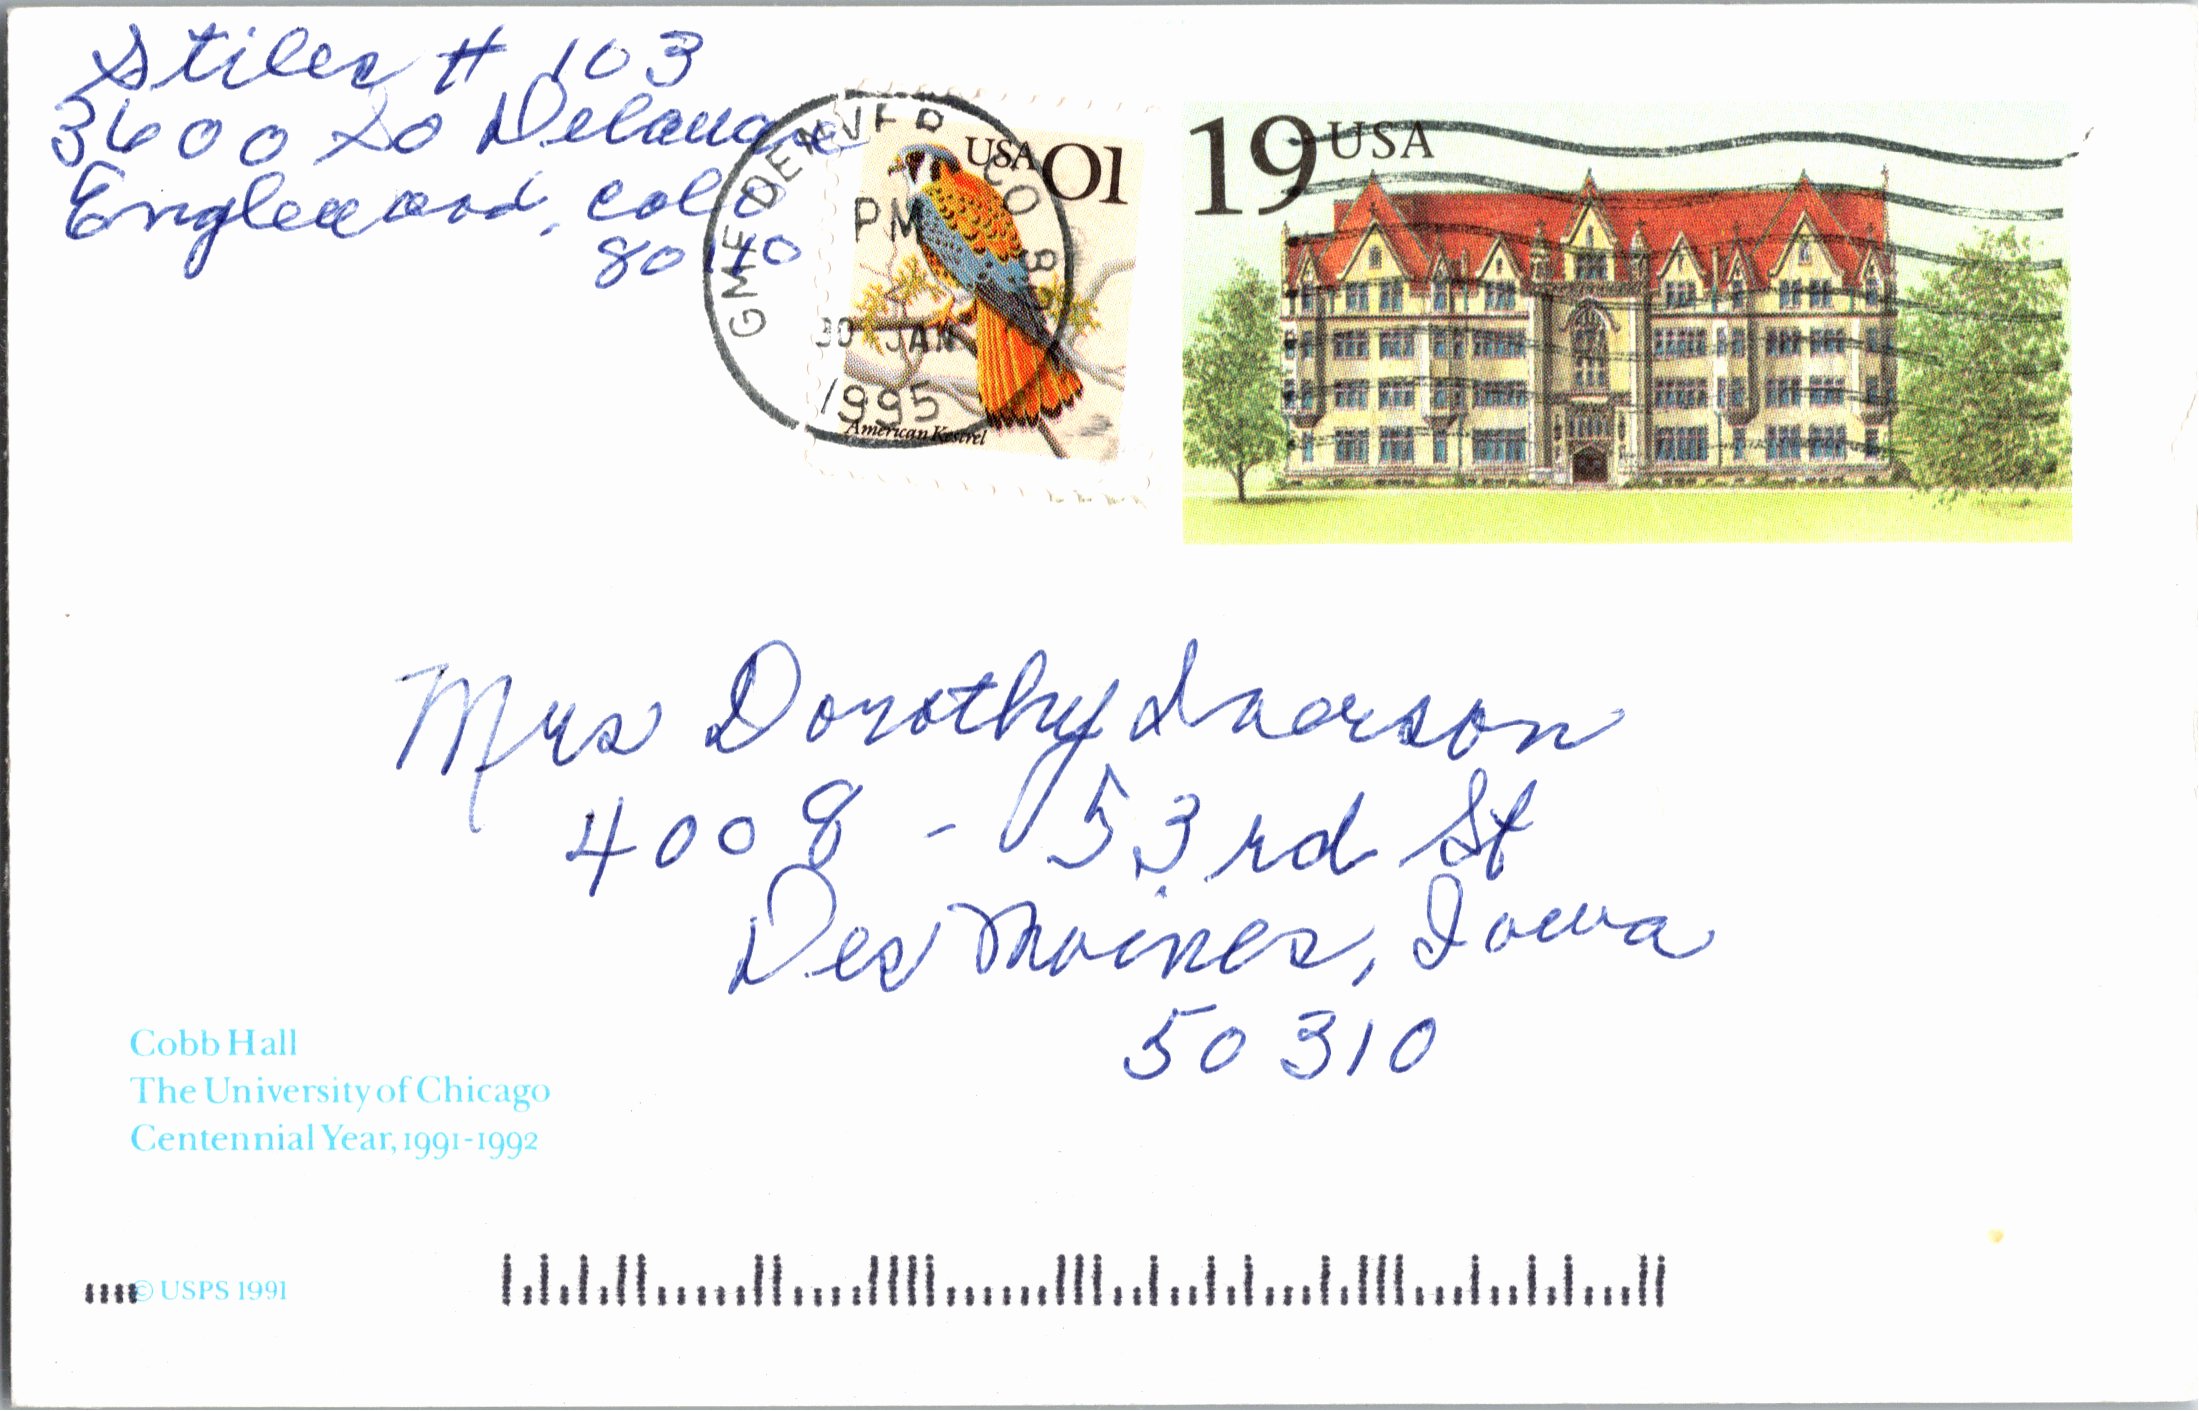 Stiles # 103
3600 So Delaware
Englewood, Colo
80110
GMF DENVER CO 802
PM
30 JAN
1995
USA 01
American Kestrel
19 USA
Mrs Dorothy Iverson
4008 - 53rd St
Des Moines, Iowa
50310
Cobb Hall
The University of Chicago
Centennial Year, 1991-1992
© USPS 1991